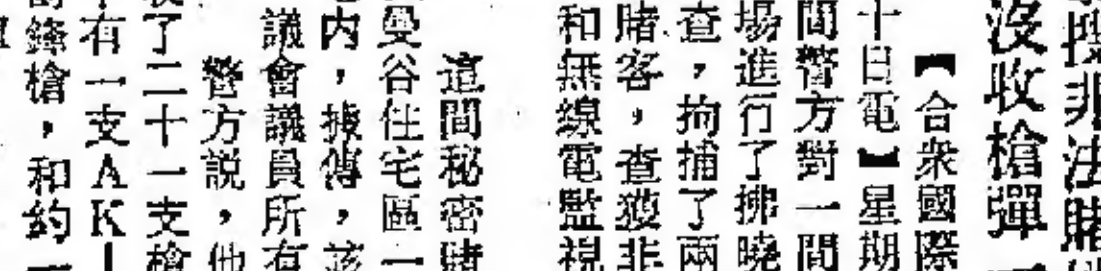 搜非法賭
沒收槍彈
【合衆國際
十日電】星期
間警方對一間
場進行了拂曉
查，拘捕了兩
賭客，查獲非
和無線電監視
這間秘密賭
曼谷住宅區一
內，據傳，該
議會議員所有
警方說，他
了二十一支槍
有一支AK—
鋒槍，和約